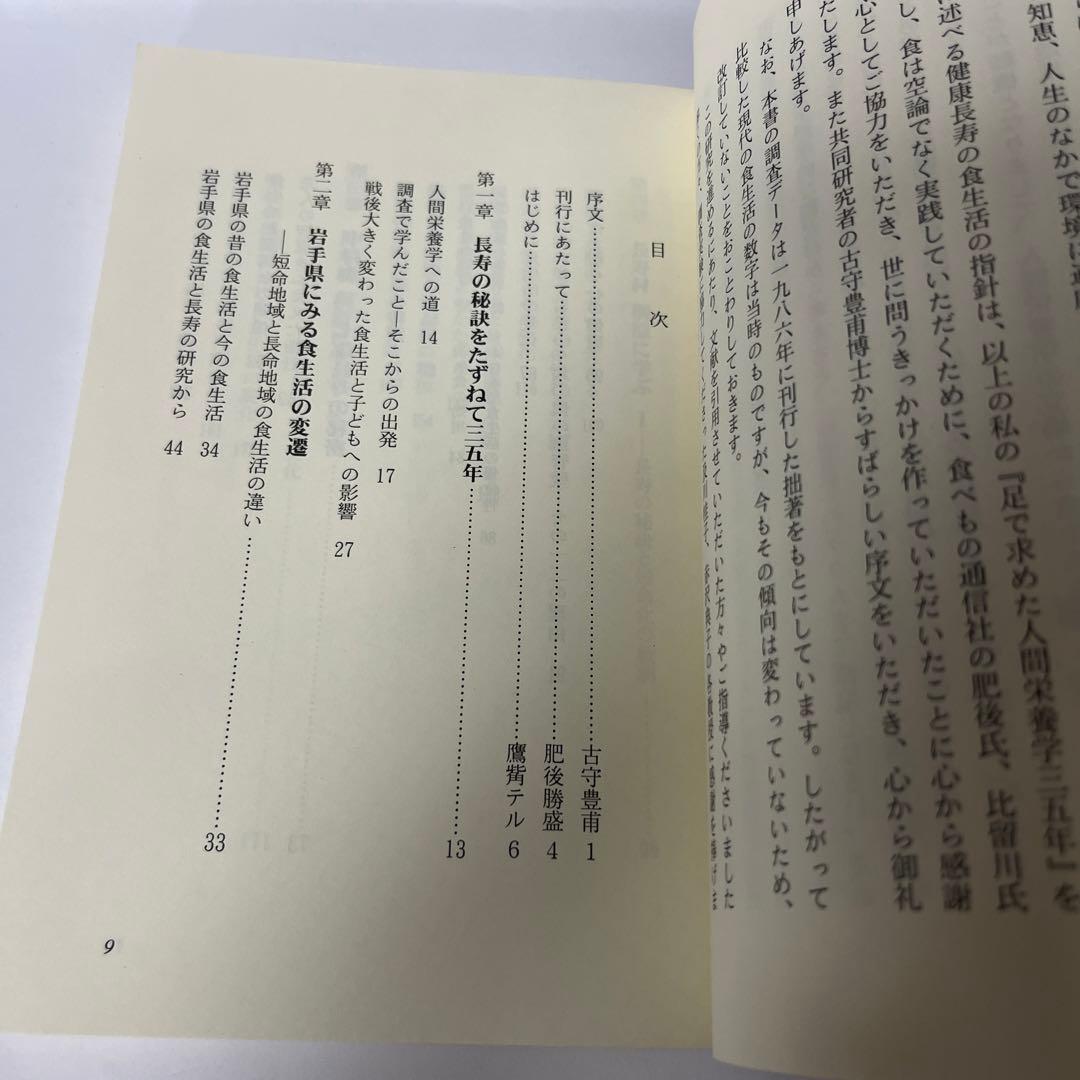 知恵、人生のなかで環境は
述べる健康長寿の食生活の指針は、以上の私の『足で求めた人間栄養学三五年』を
し、食は空論でなく実践していただくために、食べもの通信社の肥後氏、比留川氏
心としてご協力をいただき、世に問うきっかけを作っていただいたことに心から感謝
たします。また共同研究者の古守豊甫博士からすばらしい序文をいただき、心から御礼
申しあげます。
なお、本書の調査データは一九八六年に刊行した拙著をもとにしています。したがって
比較した現代の食生活の数字は当時のものですが、今もその傾向は変わっていないため、
改訂していないことをおことわりしておきます。
この研究を進めるにあたり、文献を引用させていただいた方々やご指導くださいました
目次
序文……古守豊甫 1
刊行にあたって……肥後勝盛 4
はじめに……鷹觜テル 6
第一章 長寿の秘訣をたずねて三五年……13
人間栄養学への道 14
調査で学んだこと―そこからの出発 17
戦後大きく変わった食生活と子どもへの影響 27
第二章 岩手県にみる食生活の変遷
―短命地域と長命地域の食生活の違い……33
岩手県の昔の食生活と今の食生活 34
岩手県の食生活と長寿の研究から 44
9